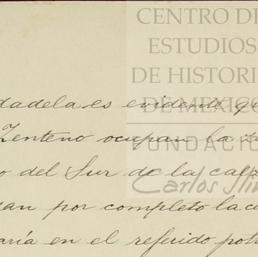 CENTRO DE
ESTUDIOS
DE HISTORI
DE MÉXICO
FUNDACIÓN
Carlos Slim
dadela es evidente qu
Zenteno ocupan la
o del Sur de la cal
an por completo la
aría en el referido pot